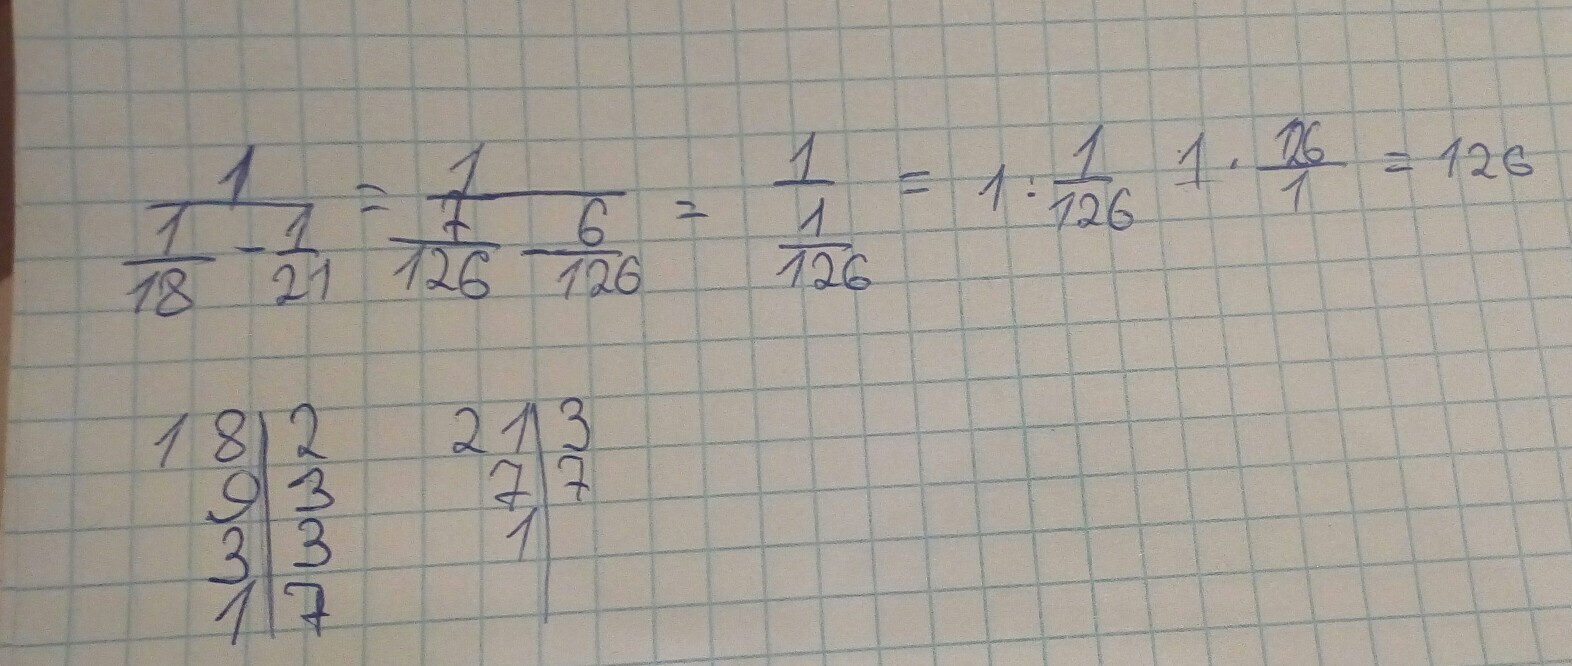 1/(1/18 - 1/21) = 1/(7/126 - 6/126) = 1/(1/126) = 1 : 1/126 1 · 126/1 = 126
18 | 2 21 | 3
9 | 3 7 | 7
3 | 3 1 |
1 | 7